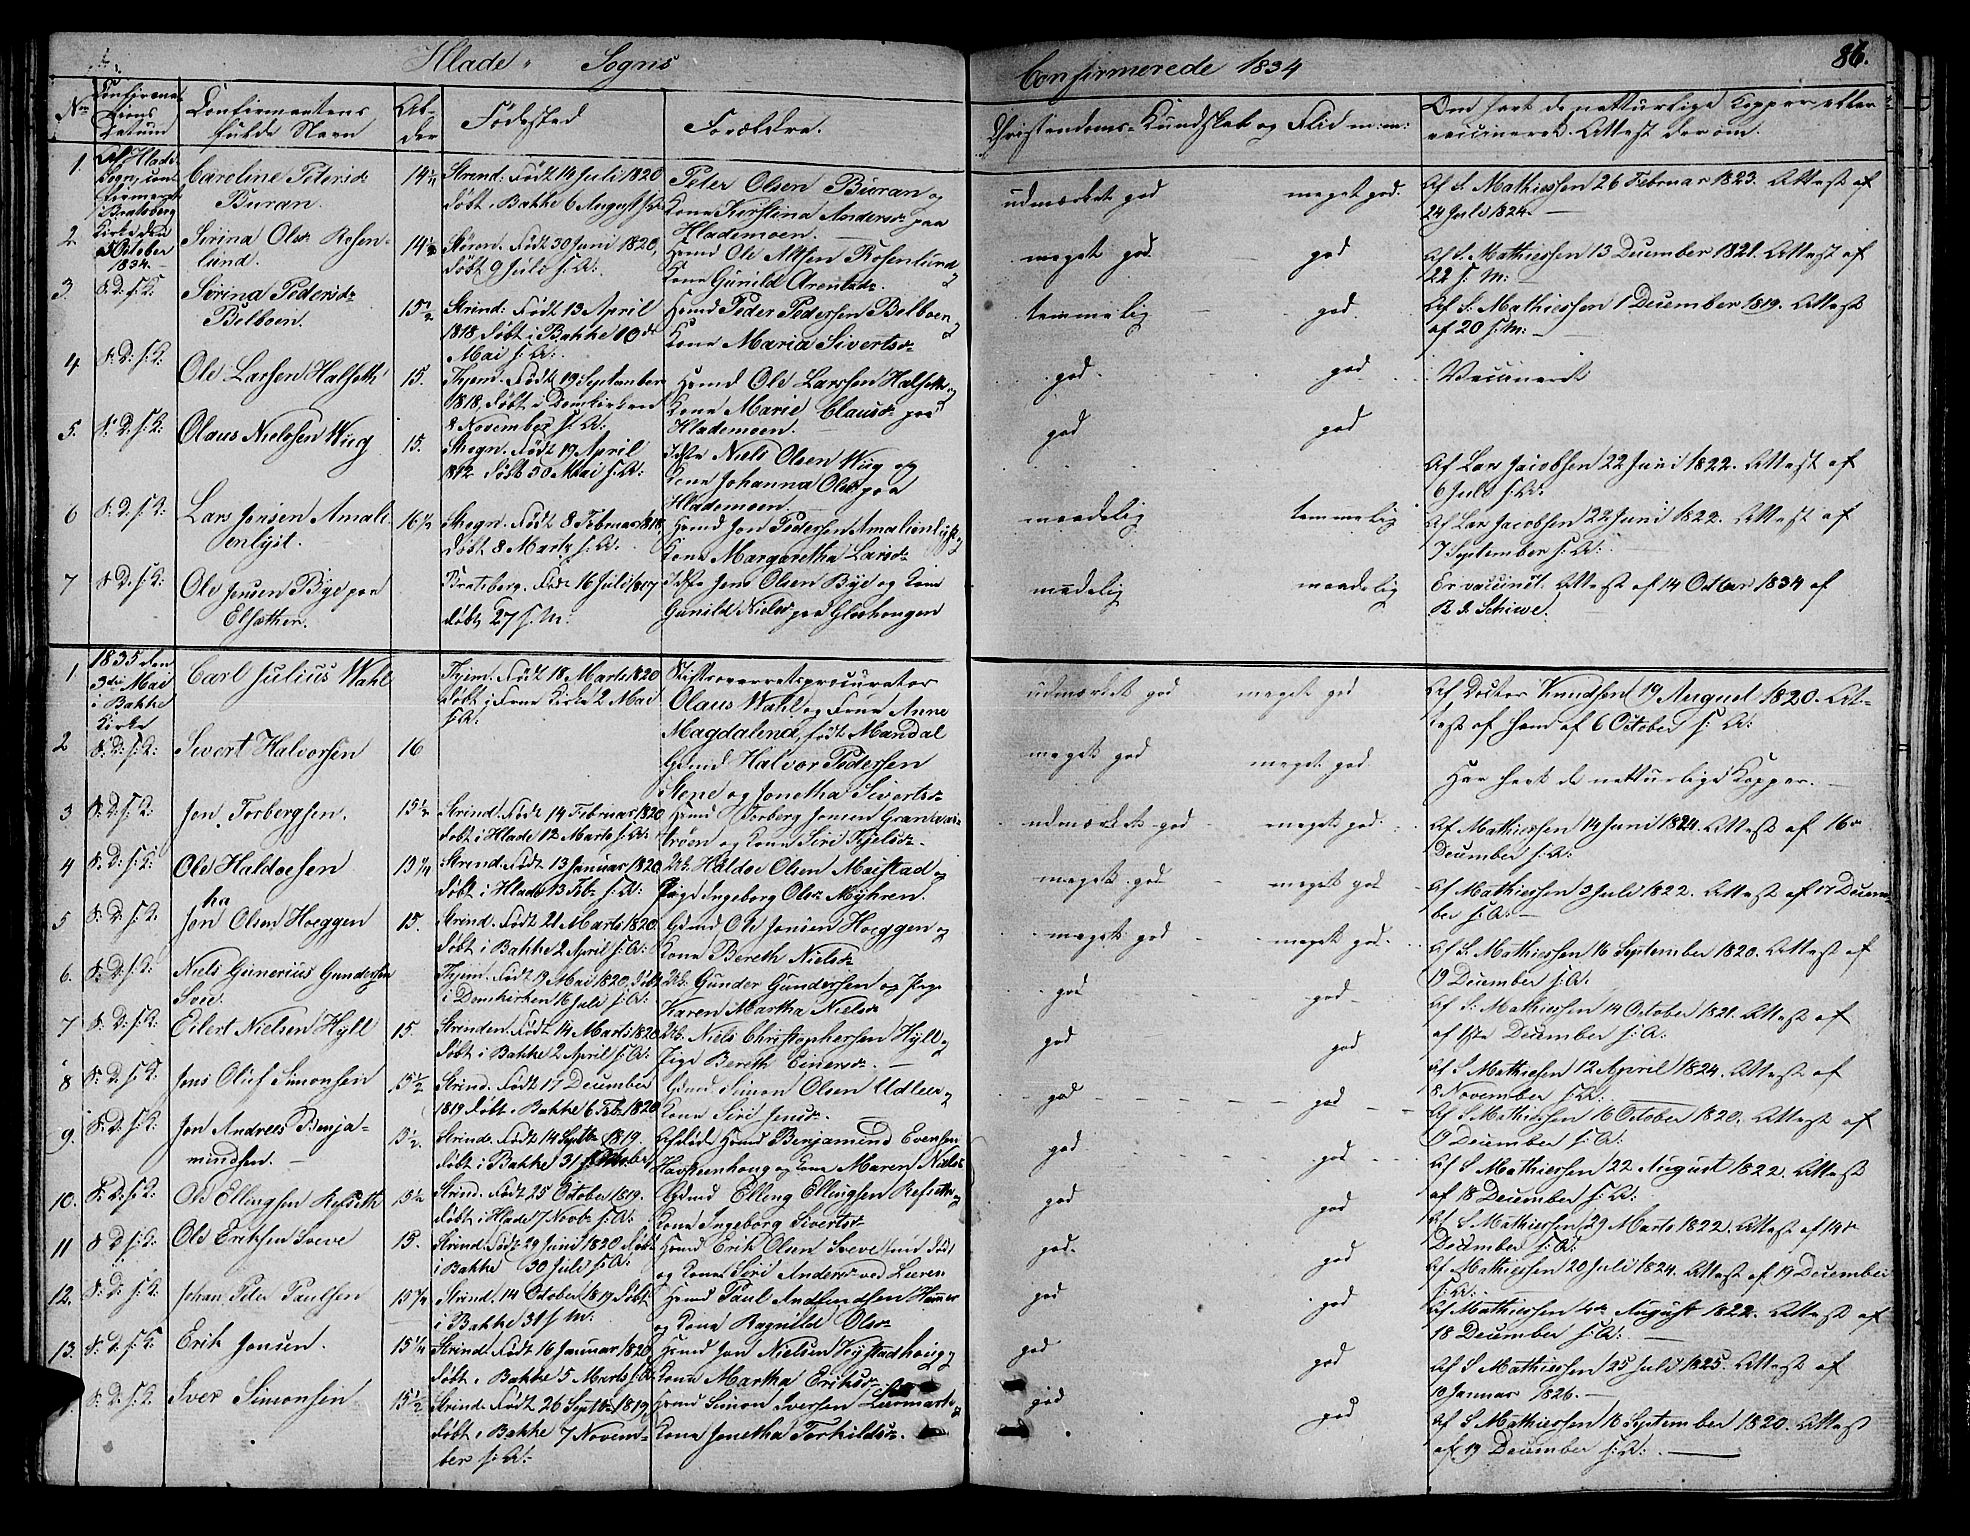 Hlade Sogns
Confirmerede 1834
86.
No
Confirma-
tions
Datum
Confirmantens
fulde Navn
Al-
der
Fødested
Forældre.
Christendoms-Kundskab og Flid m: m:
Om havt de naturlige Kopper eller
vaccineret. Attest derom.
1.
Af Hlade
Sogn, con-
firmerede
i Bratsberg
Kirke den
5 October
1834.
Caroline Petersd:
Buran.
14 1/4
Strind: Født 14 Juli 1820
døbt i Bakke 6 August s: A:
Peter Olsen Buran og
Kone Kirstina Andersd: paa
Hlademoen.
udmærket god
meget god.
Af S. Mathiessen 26 Februar 1823. Attest af
24 Juli 1824.
2
Sirina Olsd: Rosen-
lund.
Født 30 Juni 1820,
døbt 9 Juli s: A:
Huusmd Ole Altsen Rosenlund
Kone Gunild Arentsd:
meget god
god
Af S. Mathiessen 13 December 1821. Attest af
22 s: M:
3.
S: D: s: K:
Sirina Pedersd:
Belboen.
15 1/2
Strind: Født 13 April
1818, døbt i Bakke 10de
Mai s: A:
Huusmd Peder Pedersen Belboen
Kone Maria Sivertsd:
temmelig
god
Af S: Mathiessen 1 December 1819. Attest
af 20 s: M:
4
S: D: s: K:
Ole Larsen Halseth
15.
Thjem. Født 19 September
1818, døbt i Domkirken
8 November s: A:
Huusmd Ole Larssen Halseth
Kone Marie Clausd: paa
Hlademoen.
god
god
Vaccineret
5.
S: D: s: K:
Olaus Nielsen Wiig
15.
Født 19 April
døbt 30 Mai s: A:
Niels Olsen Wiig og
Kone Johanna Olsd: paa
Hlademoen
god
god
Af Lars Jacobsen 22 Juni 1822. Attest af
6 Juli s: A:
6
S: D: s: K:
Lars Jensen Amali-
enlyst.
16 1/2
Født 8 Februar 1818,
døbt 8 Marts s: A:
Huusmd Jon Pedersen Amalienlyst
Kone Margaretha Larsd:
maadelig
temmelig
Af Lars Jacobsen 22 Juni 1822. Attest af
7 September s: A:
7
S: D: s: K:
Ole Jensen Bye paa
Elsæther.
Bratsberg. Født 16 Juli 1817
døbt 27 s: M:
Jens Olsen Bye og Kone
Gunild Nielsd: paa
maadelig
maadelig
Er vaccineret. Attest af 14 Octbr 1834 af
R. J. Schiwe.
1
1835 den
3die Mai
i Bakke
Kirke
Carl Julius Wahl
Thjem. Født 18 Marts 1820
døbt i Frue Kirke 2 Mai
s: A:
Stiftsoverretsprocurator
Olaus Wahl og Frue Anne
Magdalena, født Mandal
udmærket god
meget god
Af Doctor Knudsen 19 August 1820. At-
test af ham af 6 October s: A:
2
S: D: s: K:
Sivert Halvorsen
16
Gmd Halvor Pedersen
Stene og Jonetha Sivertsd:
meget god
meget god
Har havt de naturlige Kopper.
3
S: D: s: K:
Jon Torbergsen.
15 1/4
Strind. Født 14 Februar 1820
døbt i Hlade 12 Marts s: A:
Huusmd Torberg Jonsen
og Kone Siri Kjelsd:
udmærket god
meget god
Af Mathiessen 14 Juni 1824. Attest af 16de
December s: A:
4
S: D: s: K:
Ole Haldorsen
15 1/4
Strind. Født 13 Januar 1820
døbt i Hlade 13 Feb. s: A:
Haldor Olsen Moistad og
Pige Ingeborg Olsd: Myhren.
meget god
meget god
Af Mathiessen 3 Juli 1822. Attest af 17 Decem-
ber s: A:
5
S: D: s: K:
Jon Olsen Hoeggen
15.
Strind. Født 21 Marts 1820.
døbt i Bakke 2 April s: A:
Gmd Ole Jonsen Hoeggen og
Kone Bereth Nielsd:
meget god
meget god.
Af S. Mathiessen 16 September 1820. Attest af
19 December s: A:
6.
S: D: s: K:
Niels Gunerius Gundersen
Svee.
Thjem. Født 19 Mai 1820, døbt
i Domkirken 16 Juli s: A:
Gunder Gundersen og Pige
Karen Martha Nielsd:
god
god
Af S: Mathiessen 14 October 1821. Attest af
December s: A:
7
S: D: s: K:
Eilert Nielsen Hyll
15.
Strinden. Født 14 Marts 1820
døbt i Bakke 2 April s: A:
Niels Christophersen Hyll
Pige Bereth Einersd:
god
god
Af S Mathiessen 12 April 1824. Attest af
8 November s: A:
8
S: D: s: K:
Jens Oluf Simonsen
15 1/2
Strind. Født 17 December
1819 døbt i Bakke 6 Feb: 1820
Gmd Simon Olsen Udleer
Kone Siri Jensd:
god
god
Af S Mathiessen 16 October 1820. Attest af
19 December s: A:
9.
S: D: s: K:
Jon Andreas Benja-
mindsen.
15 1/2.
Strind. Født 14 Septbr 1819.
døbt i Bakke 31 October
Afdøde Huusmd Benjamind Evensen
og Kone Maren Nielsd:
god
god
Af S Mathiessen 22 August 1822. Attest
af 18 December s: A:
10.
S: D: s: K:
Ole Ellingsen Refseth
15 1/2
Strind. Født 25 October 1819.
døbt i Hlade 7 Novbr s: A:
Gdmd Elling Ellingsen Refseth
Kone Ingeborg Sivertsd:
god
god
Af S Mathiessen 29 Marts 1822. Attest af 14de
December s: A:
11
S: D: s: K:
Ole Eriksen Sveve
15.
Strind. Født 29 Juni 1820 døbt
i Bakke 30 Juli s: A:
Huusmd Erik Olsen Sveve
og Kone Siri Andersd: ved Leeren
god.
god
Af Mathiessen 20 Juli 1824. Attest af 19 December
s: A:
12.
S: D: s: K:
Johan Peter Paulsen
15 1/2
Strind. 14 October 1819 døbt
i Bakke 31 s: M:
Huusmd Paul Hammer
og Kone Ragnild Olsd:
god
god
Af Mathiessen August 1822. Attest af
18 December s: A:
13.
S: D: s: K:
Erik Jonsen.
15 1/4
Strind. Født 16 Januar 1820
døbt i Bakke 5 Marts s: A:
Huusmd Jon Nielsen Hystadhoug
Kone Martha Eriksd:
god
god
Af S Mathiessen 25 Juli 1825. Attest af
19 Januar 1826.
S: D: s: K:
Iver Simonsen
15 1/2
Strind. Født 26 Septbr 1819
døbt i Bakke 7 Novem-
ber s: A:
Huusmd Simon Iversen
Kone Jonetha Torkildsd:
god
god
Af S Mathiessen 16 September 1820. Attest
af 19 December s: A: